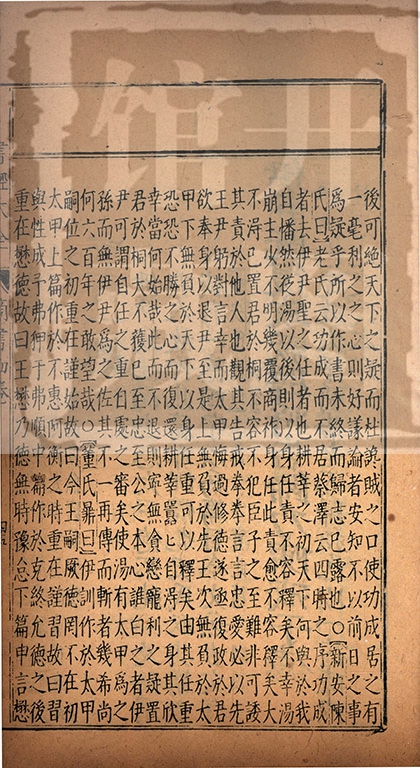 後可絕天下之疑而杜讒賊之口使功成居之有
一毫利之之心則好議論者安知不以前日之事
為疑乎所以作書未終而歸志已露也○新安陳
氏曰老氏云功成而不居蔡澤云四時之序功成
者去伊尹聖之任者也耕莘之初天下何與於我
自幡然從湯以後則以身任此責不容釋矣不幸湯
崩主少不明幾覆商祚身任此責愈不容釋矣大
不得已置君於桐不容不犯臣子之至難非可諉
其責於他人也觀其告戒拳拳言言忠愛必以先
王尹躬對言幸而太甲悔過修德遂亟復政於太
欲奉身以退尹至是上無負於先王次無負於太
甲下無負於天下以身任重可以釋矣由其任重
恐恐不勝之心而復還耕莘囂囂自得之身其欣
幸當何如哉此心而不退則寧無貪戀寵利之疑置
君於桐大不獲已至公之本心誰白之者伊
尹可謂自處之審矣使湯有太甲為之
孫而無伊尹為之佐其不一再傳而斬者幾希尚
何六百年之敢望哉○董氏鼎曰伊訓作於太甲
嗣位之初重在謹始故曰今王嗣厥德罔不在初
太甲上篇作於不惠阿衡之時重在謹習故曰習
與性成予弗狎于弗順中篇作於克終允德之後
重在懋德故曰王懋乃德無時豫怠下篇申言懋
書經大全